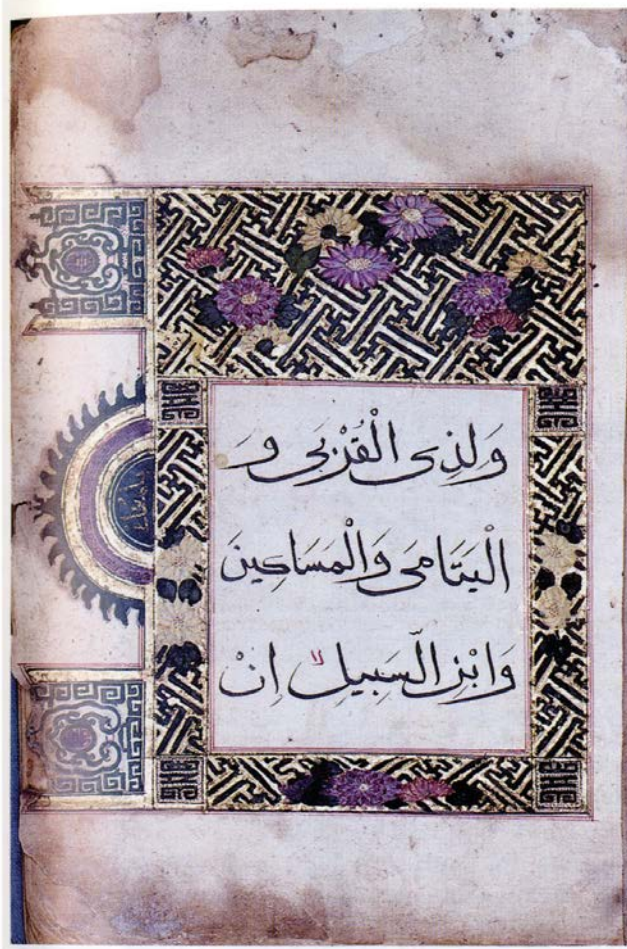 وَلِذِى الْقُرْبٰى وَ
الْيَتَامَى وَالْمَسَاكِينَ
وَابْنِ السَّبِيلِ ۙ اِنْ